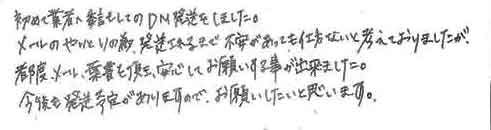 初めて業者へ委託してのDM発送をしました。
メールのやりとりの為、発送されるまで不安があっても仕方ないと考えておりましたが、
都度、メール、葉書を頂き、安心してお願いする事が出来ました。
今後も発送予定がありますので、お願いしたいと思います。